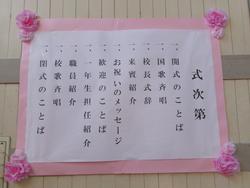 式次第
一、開式のことば
一、国歌斉唱
一、校長式辞
一、来賓紹介
一、お祝いのメッセージ
一、歓迎のことば
一、一年生担任紹介
一、職員紹介
一、校歌斉唱
一、閉式のことば